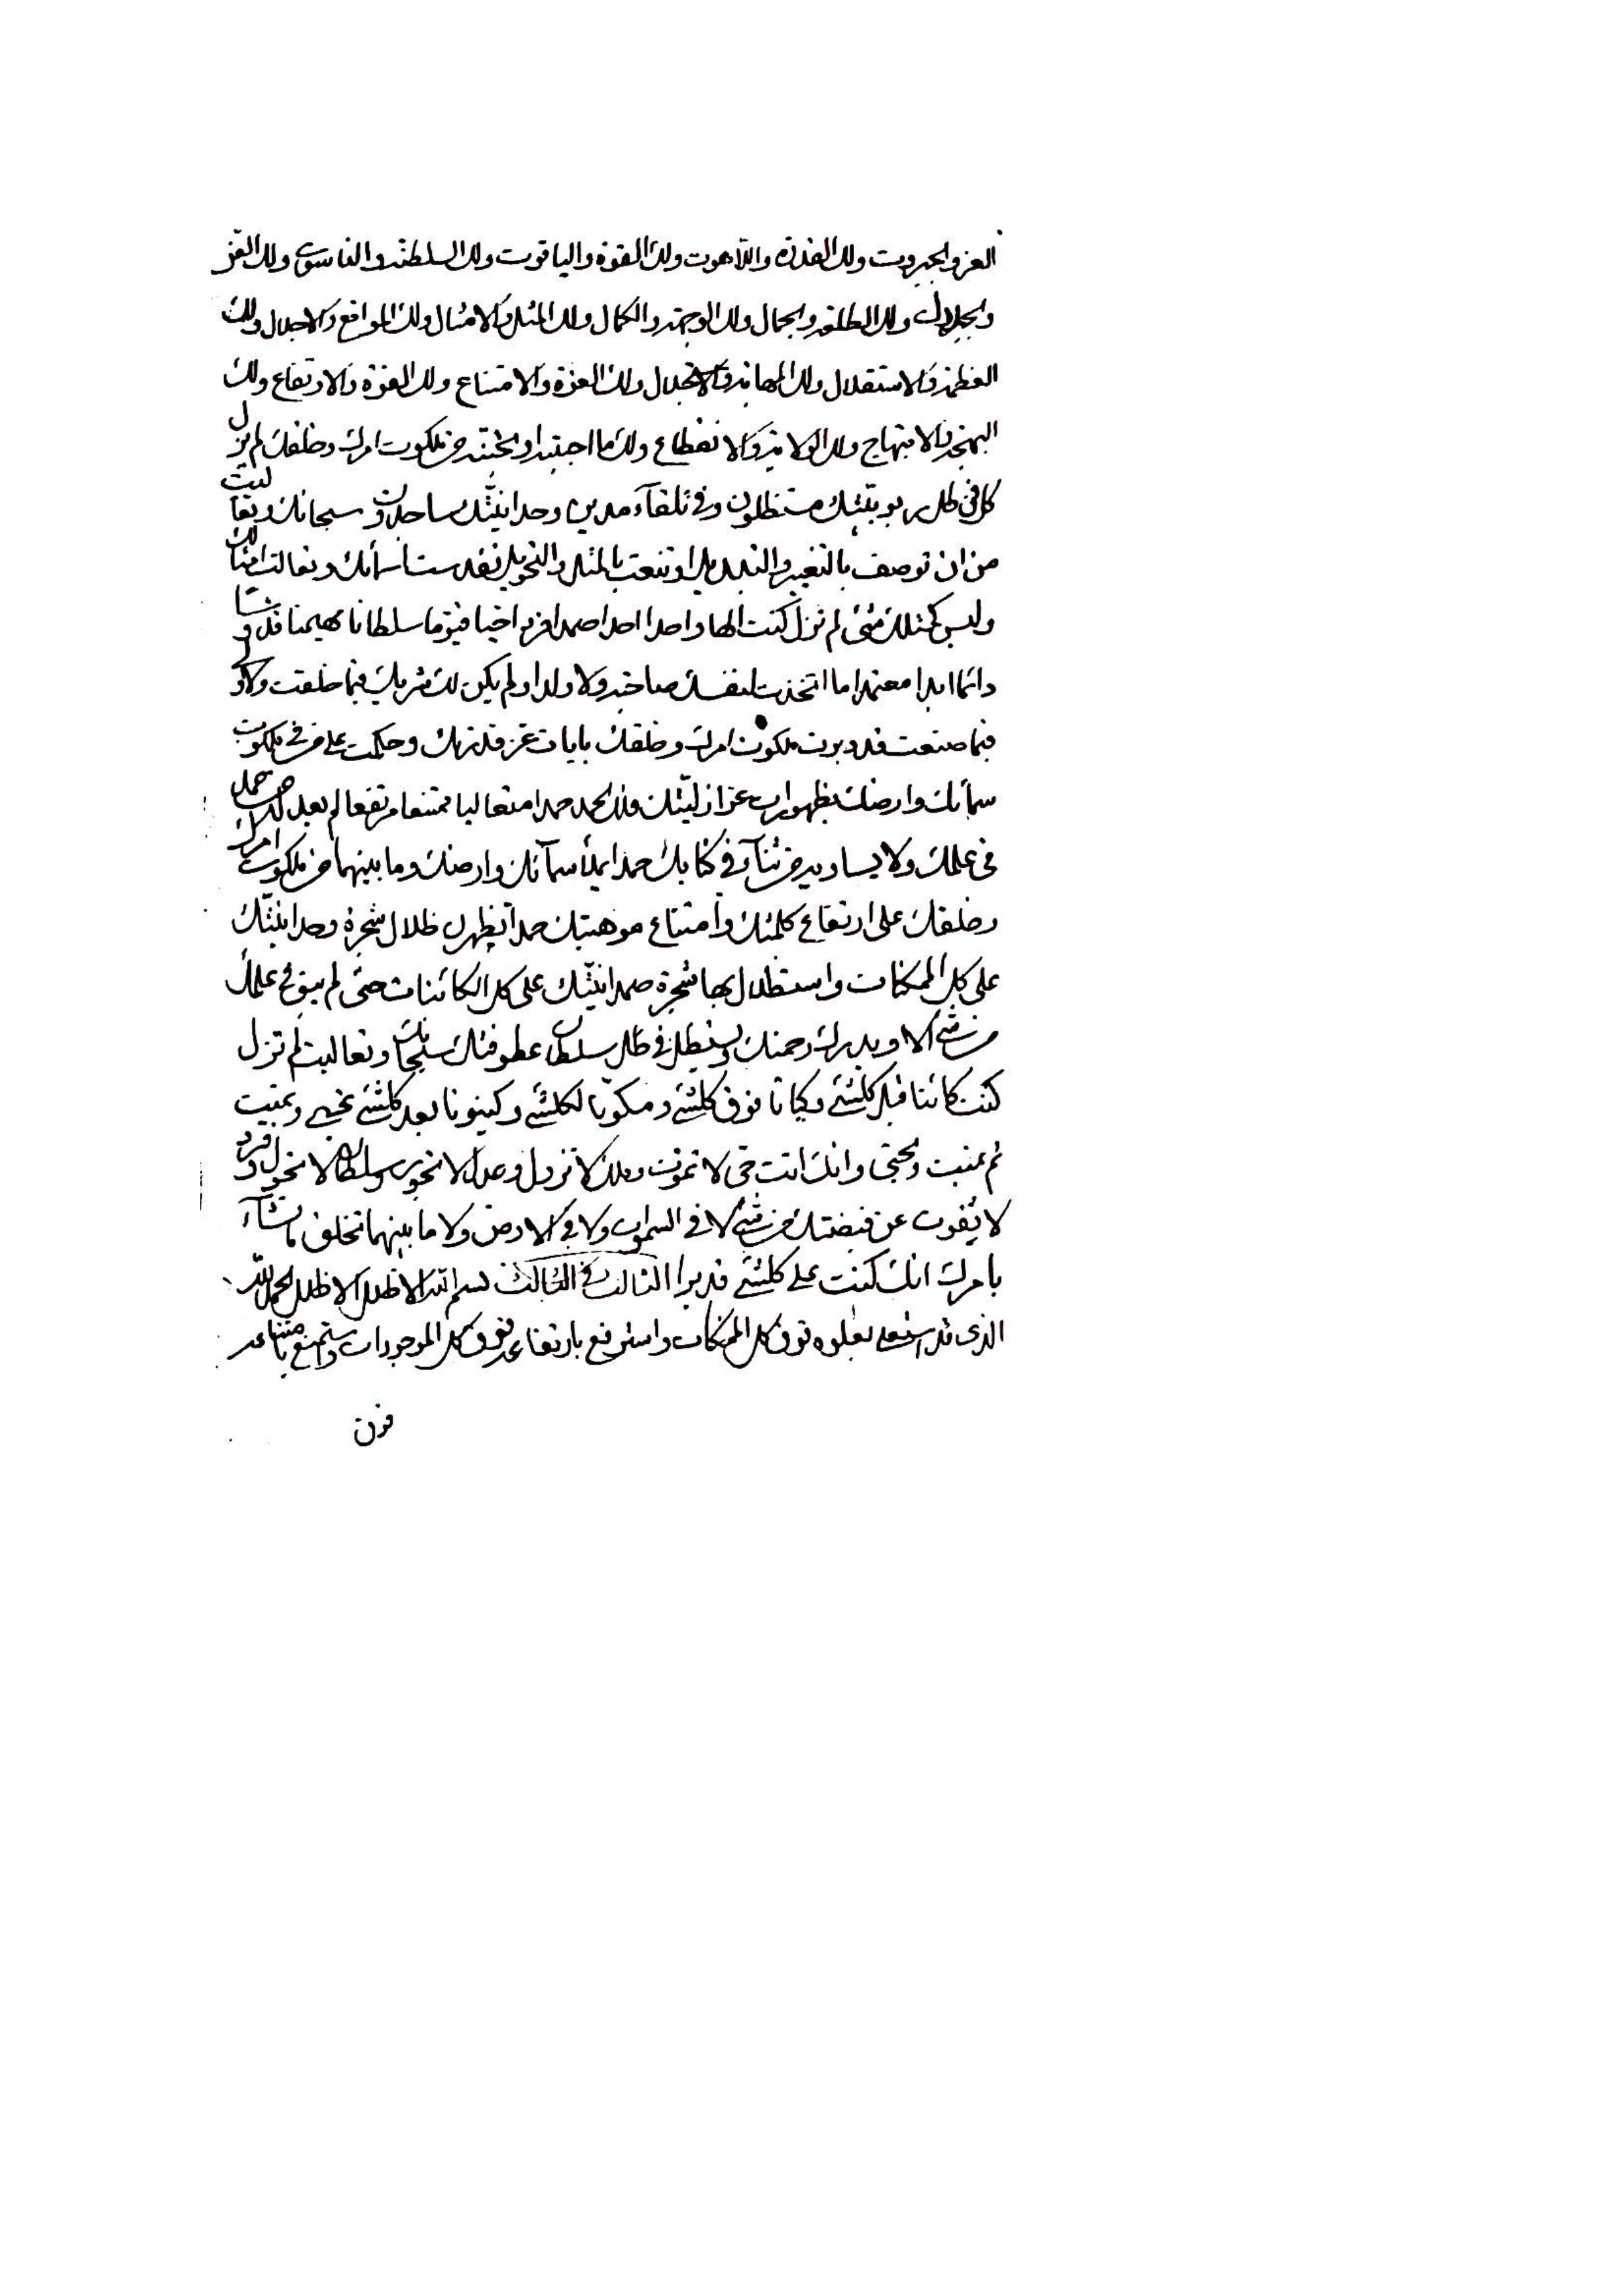 العز والجبروت ولك القدرة واللاهوت ولك القوة والياقوت ولك السلطنة والناسوت ولك العز
والجلال ولك الطلعة والجمال ولك الوجهة والكمال ولك المثل والامثال ولك المواقع والاجلال ولك
العظمة والاستقلال ولك المهابة والاجلال ولك العزة والامتناع ولك العزة والارتفاع ولك
البهجة والابتهاج ولك الولاية والانقطاع ولك ما احببته او تحبنه من ملكوت امرك وخلقك لم تزل
كل في ظل ربوبيتك مستظلون وفي تلقاء مدين وحدانيتك ساجدون سبحانك وتعاليت
من ان توصف بالتغيير والتبديل او تنعت بالمثل والتحويل تقدست اسمائك وتعالت امثالك
وليس كمثلك شئ لم تزل كنت الها واحدا احدا صمدا فردا حيا قيوما سلطانا مهيمنا قدوسا
دائما ابدا معتمدا ما اتخذت لنفسك صاحبة ولا ولدا ولم يكن لك شريك فيما خلقت ولا ولي
فيما صنعت قد دبرت ملكوت امرك وخلقك بايات عز قدرتك وحكمت على من في ملكوت
سمائك وارضك بظهورات عز ازليتك فلك الحمد حمدا متعاليا ممتنعا مرتفعا لم يعدله من حمد
في علمك ولا يساويه من ثناء في كتابك حمدا يملأ سمائك وارضك وما بينهما من ملكوت امرك
وخلقك على ارتفاع كلمتك وامتناع موهبتك حمدا تظهرن ظلال شجرة وحدانيتك
على كل الممكنات واستظلال بها شجرة صمدانيتك على كل الكائنات حتى لم يبق في علمك
من شئ الا ويدرك رحمتك ويستظل في ظل سلطان عطوفتك سبحانك وتعاليت لم تزل
كنت كائنا قبل كلشئ وكيانا فوق كلشئ ومكونا لكلشئ وكينونا بعد كلشئ تحيي وتميت
ثم تميت وتحيي وانك انت حي لا تموت وملك لا تزول وعدل لا تجور وسلطان لا تحول وفرد
لا يفوت عن قبضتك من شئ لا في السموات ولا في الارض ولا ما بينهما تخلق ما تشاء
بامرك انك كنت على كلشئ قديرا الثالث في الثالث بسم الله الاظلل الاظلل الحمد لله
الذي قد استعلى بعلوه فوق كل الممكنات واسترفع بارتفاعه فوق كل الموجودات واستمنع بامتناعه
فوق